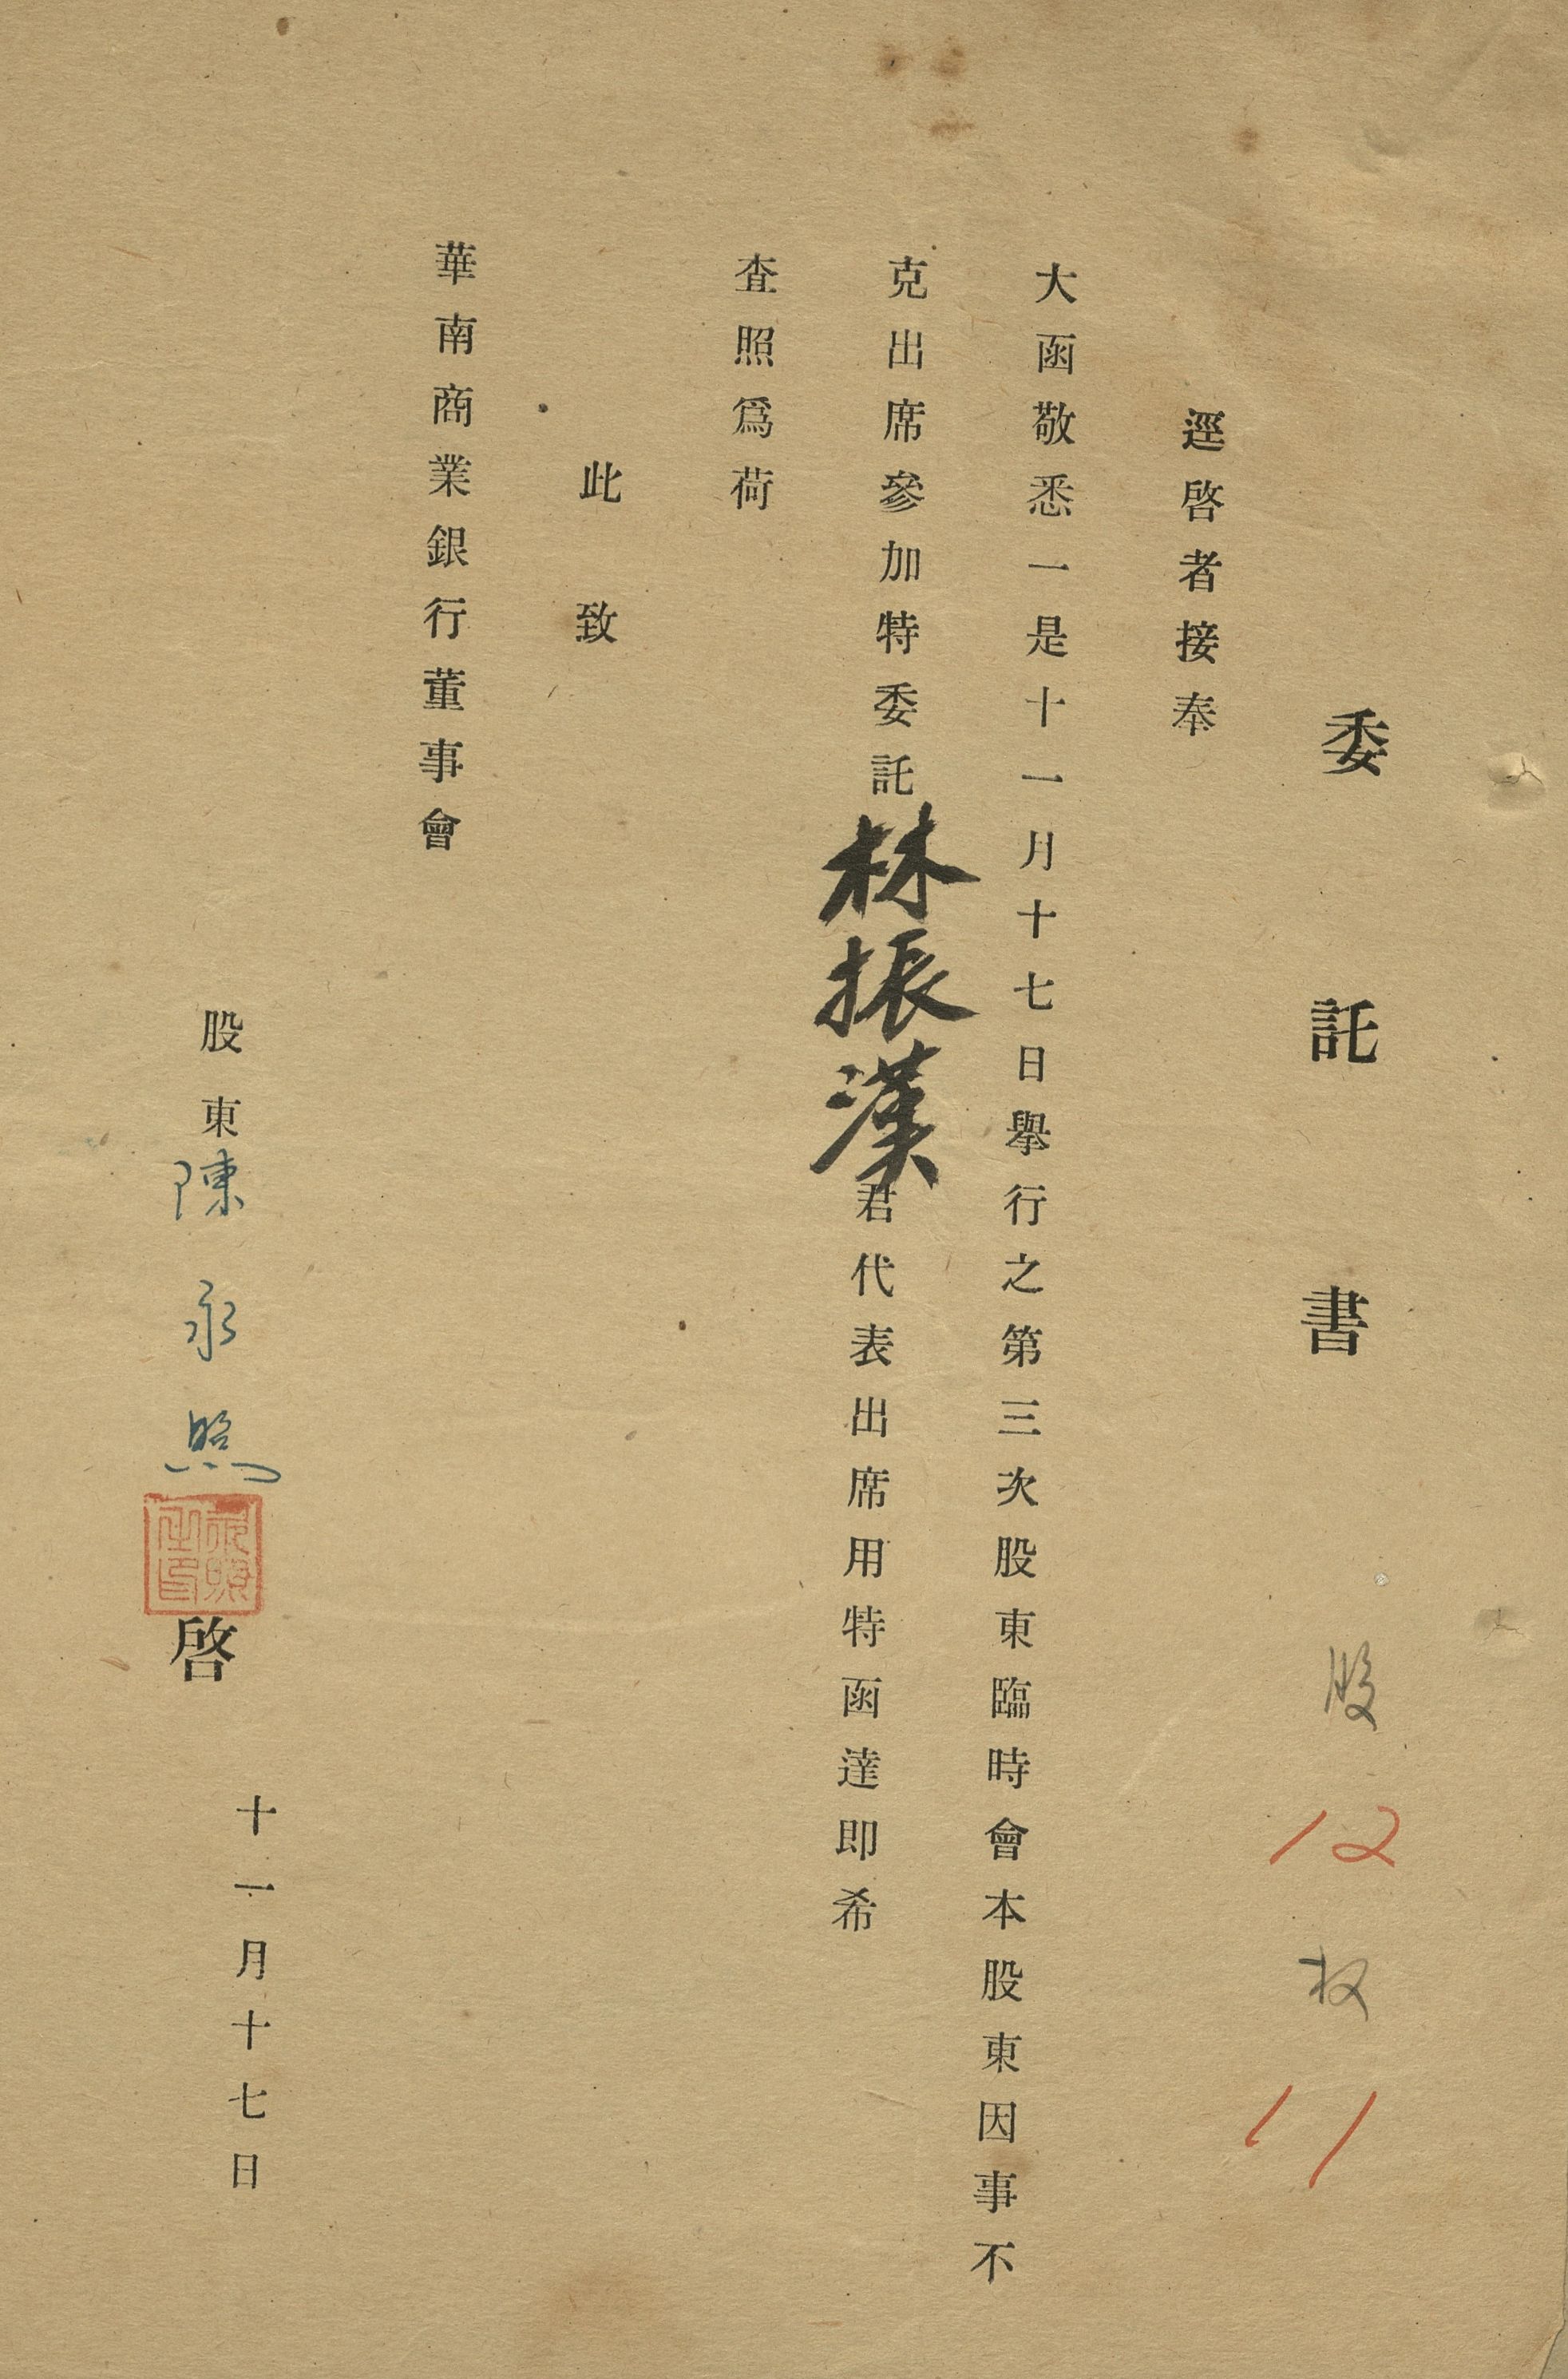 委託書
股 12 权 11
逕啓者接奉
大函敬悉一是十一月十七日舉行之第三次股東臨時會本股東因事不
克出席參加特委託林振漢君代表出席用特函達即希
查照爲荷
此致
華南商業銀行董事會
股東陳永照啓
永照之印
十一月十七日